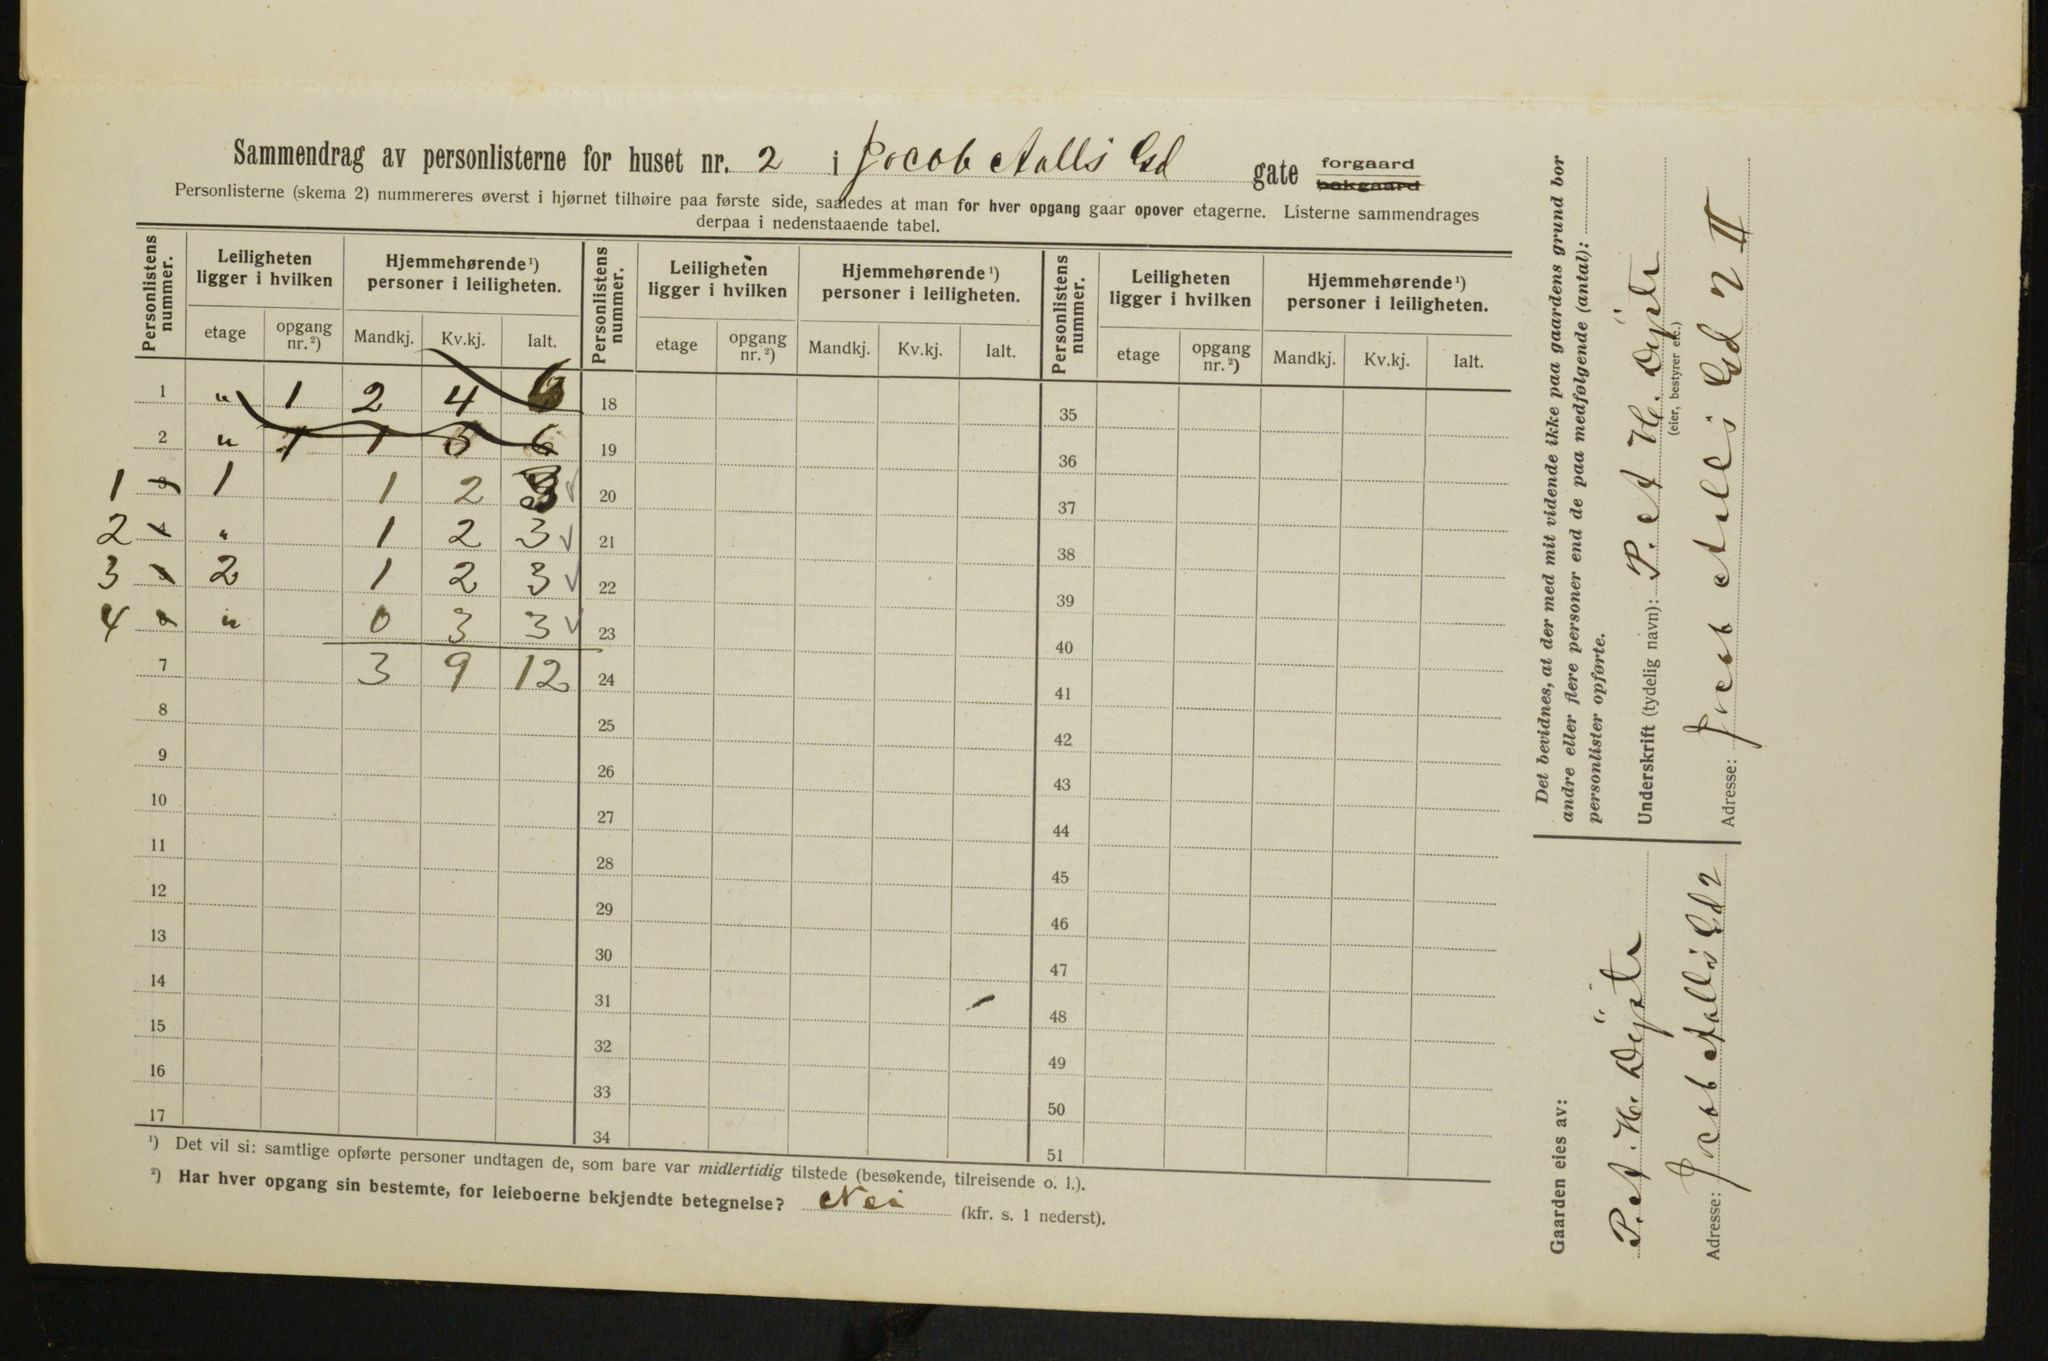 Sammendrag av personlisterne for huset nr. 2 i Jacob Aalls Gd gate forgaard bakgaard
Personlisterne (skema 2) nummereres øverst i hjørnet tilhøire paa første side, saaledes at man for hver opgang gaar opover etagerne. Listerne sammendrages
derpaa i nedenstaaende tabel.
Personlistens nummer. Leiligheten ligger i hvilken Hjemmehørende ¹) personer i leiligheten. Personlistens nummer. Leiligheten ligger i hvilken Hjemmehørende ¹) personer i leiligheten. Personlistens nummer. Leiligheten ligger i hvilken Hjemmehørende ¹) personer i leiligheten.
etage opgang nr. ²) Mandkj. Kv.kj. Ialt. etage opgang nr. ²) Mandkj. Kv.kj. Ialt. etage opgang nr. ²) Mandkj. Kv.kj. Ialt.
1 " 1 2 4 6 18 35
2 " 1 1 5 6 19 36
1 3 1 1 2 3 20 37
2 4 " 1 2 3 21 38
3 5 2 1 2 3 22 39
4 6 " 0 3 3 23 40
7 3 9 12 24 41
8 25 42
9 26 43
10 27 44
11 28 45
12 29 46
13 30 47
14 31 48
15 32 49
16 33 50
17 34 51
¹) Det vil si: samtlige opførte personer undtagen de, som bare var midlertidig tilstede (besøkende, tilreisende o. l.).
²) Har hver opgang sin bestemte, for leieboerne bekjendte betegnelse? Nei (kfr. s. 1 nederst).
Det bevidnes, at der med mit vidende ikke paa gaardens grund bor
andre eller flere personer end de paa medfølgende (antal):
personlister opførte.
Underskrift (tydelig navn): P. A. H.
(eier, bestyrer etc.)
Adresse: Jacob Aalls Gd 2 II
Gaarden eies av:
P. A. H.
Adresse: Jacob Aalls Gd 2